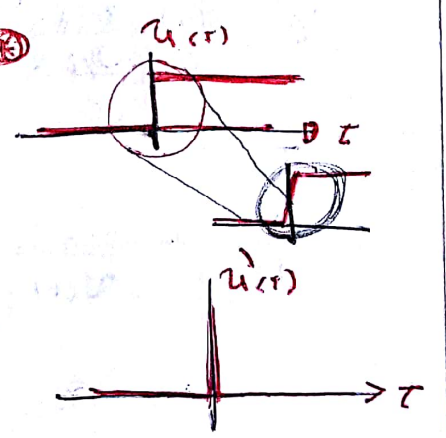 u(τ)
τ
u'(τ)
τ